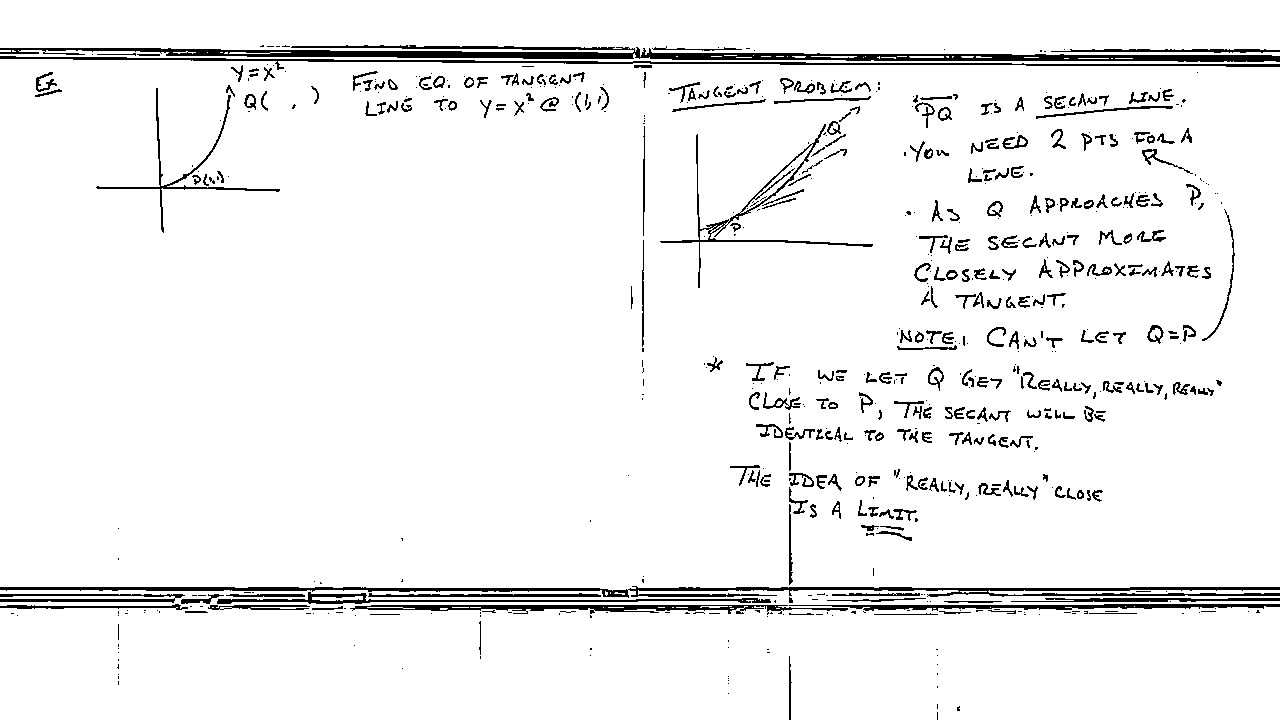 Ex
Y=X²
Q( , )
P(1,1)
FIND EQ. OF TANGENT
LINE TO Y=X² @ (1,1)
TANGENT PROBLEM:
Q
P
PQ IS A SECANT LINE.
·YOU NEED 2 PTS FOR A
LINE.
· AS Q APPROACHES P,
THE SECANT MORE
CLOSELY APPROXIMATES
A TANGENT.
NOTE: CAN'T LET Q=P
* IF WE LET Q GET "REALLY, REALLY, REALLY"
CLOSE TO P, THE SECANT WILL BE
IDENTICAL TO THE TANGENT.
THE IDEA OF "REALLY, REALLY" CLOSE
IS A LIMIT.